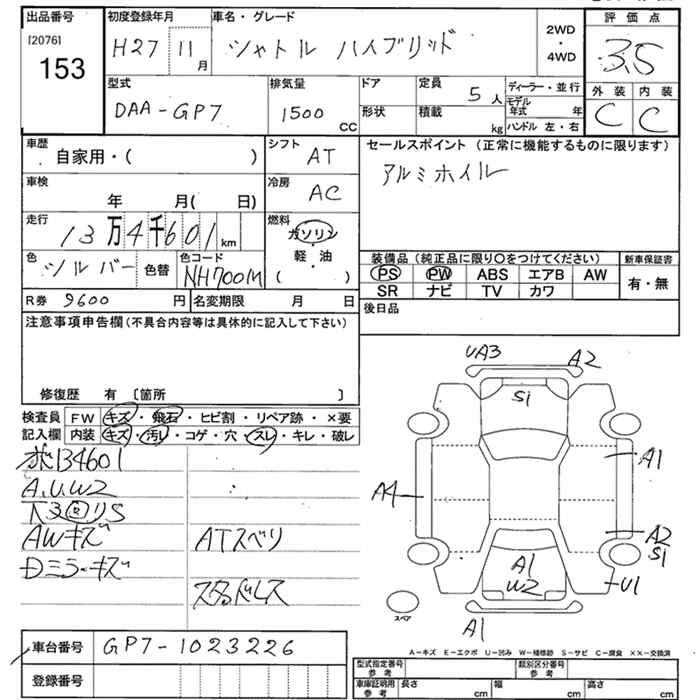 出品番号 初度登録年月 車名・グレード 2WD・4WD 評価点
[2076] 153 H27 11月 シャトル ハイブリッド 3.5
型式 排気量 ドア 定員 5人 ディーラー・並行 外装 内装
DAA-GP7 1500 CC 形状 積載 kg モデル年式 年 C C
ハンドル 左・右
車歴 自家用・( ) シフト AT セールスポイント(正常に機能するものに限ります)
アルミホイル
車検 年 月( 日) 冷房 AC
走行 13万4千601km 燃料 ガソリン・軽油 ( )
色 シルバー 色替 色コード NH700M 装備品(純正品に限り○をつけてください) 新車保証書
PS PW ABS エアB AW 有・無
SR ナビ TV カワ
R券 9600円 名変期限 月 日 後日品
注意事項申告欄(不具合内容等は具体的に記入して下さい)
修復歴 有 〔箇所 〕
検査員 FW キズ・飛石・ヒビ割・リペア跡・×要
記入欄 内装 キズ・汚レ・コゲ・穴・スレ・キレ・破レ
134601
A.U.W2
AWキズ ATスベリ
Dミラーキズ
スタッドレス
UA3 A2
S1
A1
A4
A2
S1
A1
W2
U1
スペア
A1
A-キズ E-エクボ U-凹み W-補修跡 S-サビ C-腐食 ××-交換済
車台番号 GP7-1023226
登録番号
型式指定番号 参考 類別区分番号 参考
車庫証明用 参考 長さ cm 幅 cm 高さ cm